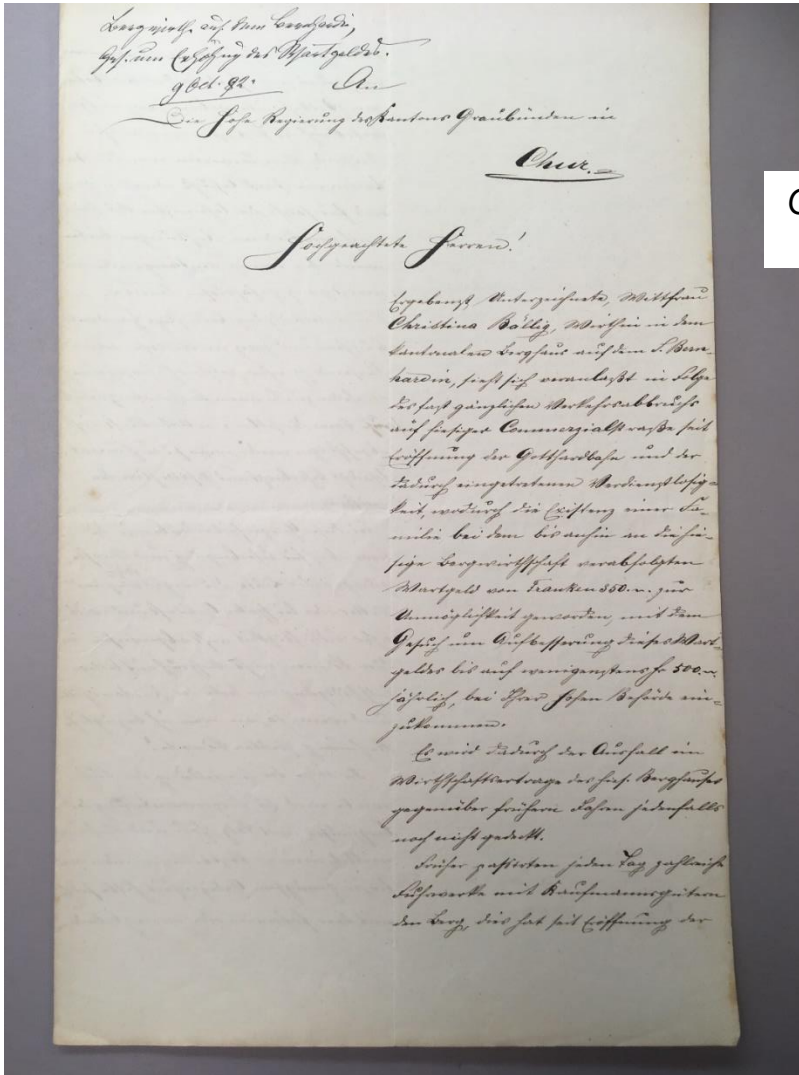 Bergwirth auf dem Bernhardin,
Ges. um Erhöhung des Wartgeldes.
9 Oct. 82.
An
Die Hohe Regierung des Kantons Graubünden in
Chur.
Hochgeachtete Herren!
Ergebenst Unterzeichnete, Wittfrau
Christina Bällig, Wirthin in dem
kantonalen Berghaus auf dem S. Bern-
hardin, sieht sich veranlaßt in Folge
des fast gänzlichen Verkehrsabbruchs
auf hiesiger Commerzialstraße seit
Eröffnung der Gotthardbahn und der
dadurch eingetretenen Verdienstlosig-
keit, wodurch die Existenz einer Fa-
milie bei dem bis anhin an die hie-
sige Bergwirthschaft verabfolgten
Wartgeld von Franken 350.-. zur
Unmöglichkeit geworden, mit dem
Gesuch um Aufbesserung dieses Wart-
geldes bis auf wenigenstens fr 500.-.
jährlich, bei Ihrer hohen Behörde ein-
zukommen.
Es wird dadurch der Ausfall im
Wirthschaftsertrage des hies. Berghauses
gegenüber frühern Jahren jedenfalls
noch nicht gedeckt.
Früher passirten jeden Tag zahlreiche
Fuhrwerke mit Kaufmannsgütern
den Berg, dies hat seit Eröffnung der